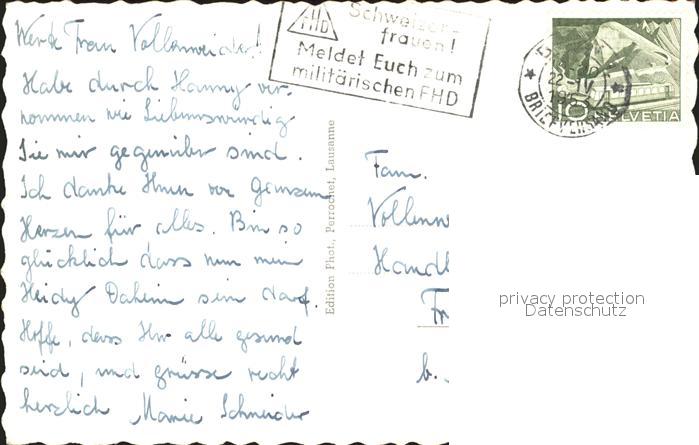 Werte Frau Vollenweider!
Habe durch Hanny ver-
nommen wie Liebenswürdig
Sie mir gegenüber sind.
Ich danke Ihnen von Ganzem
Herzen für alles. Bin so
glücklich dass nun mein
Heidy Daheim sein darf.
Hoffe, dass Ihr alle gesund
seid, und grüsse recht
herzlich Mamie Schneider
FHD
Schweizer-
frauen!
Meldet Euch zum
militärischen FHD
22-IV
BRIEFVERSAND
10 HELVETIA
Edition Phot., Perrochet, Lausanne
Fam.
Vollenw
Handl
Fr
b.
privacy protection
Datenschutz